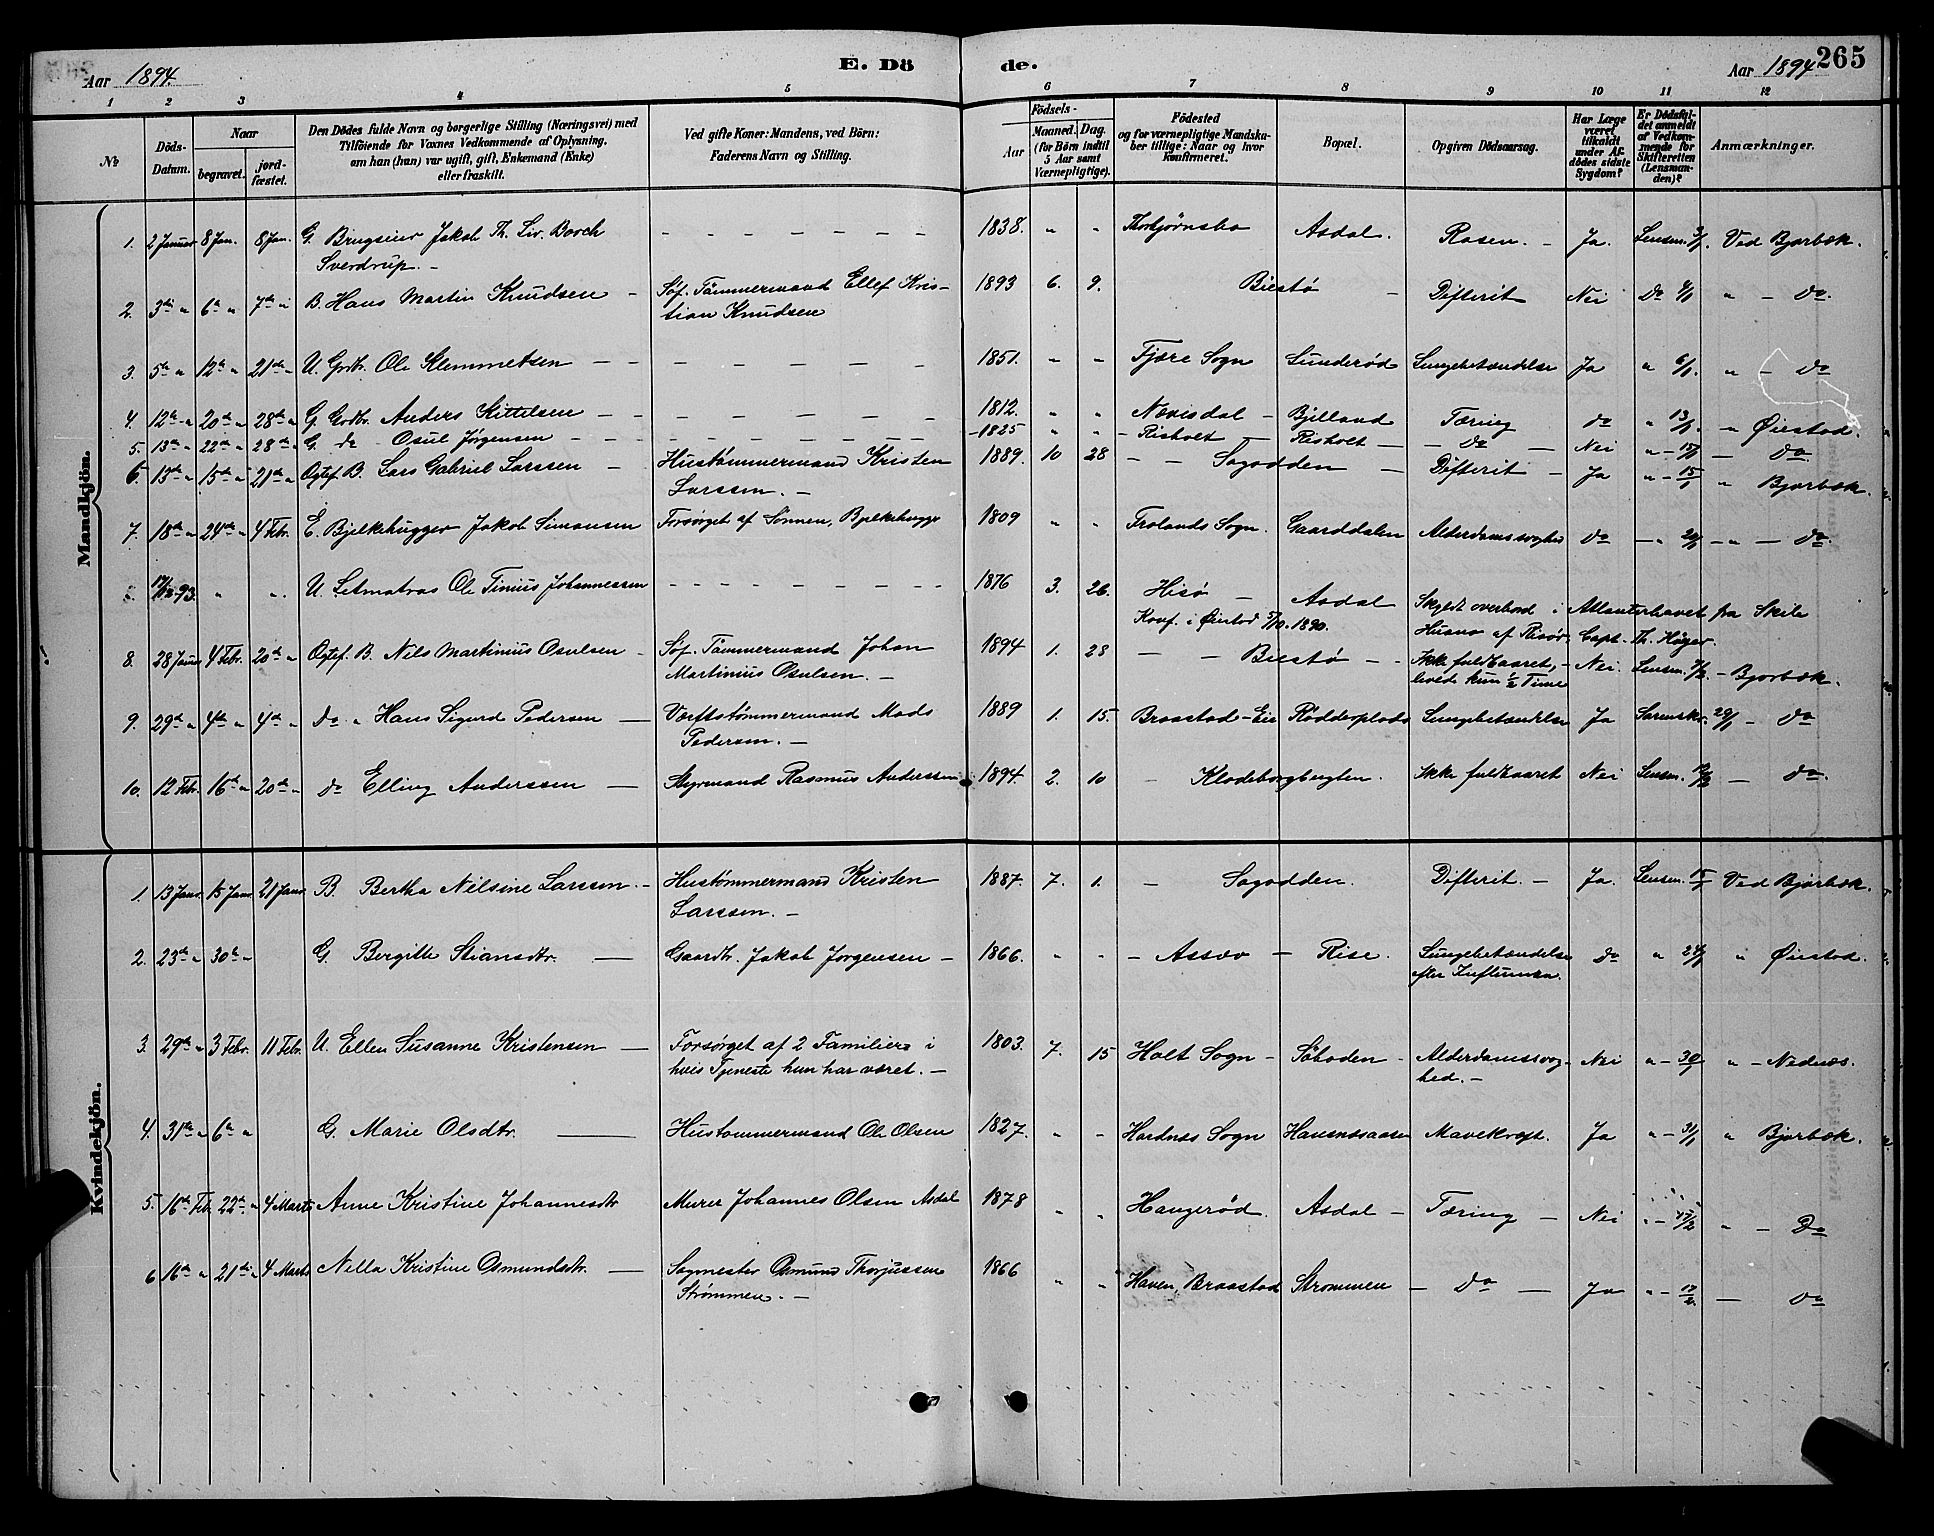 Aar 1894. E. Dö de. Aar 1894 265
1 2 3 4 5 6 7 8 9 10 11 12
No Döds-Datum. Naar begravet. jordfæstet. Den Dödes fulde Navn og borgerlige Stilling (Næringsvei) med Tilföiende for Voxnes Vedkommende af Oplysning, om han (hun) var ugift, gift, Enkemand (Enke) eller fraskilt. Ved gifte Koner: Mandens, ved Börn: Faderens Navn og Stilling. Födsels- Aar Maaned. Dag. (for Börn indtil 5 Aar samt Værnepligtige). Födested og for værnepligtige Mandskaber tillige: Naar og hvor konfirmeret. Bopæl. Opgiven Dödsaarsag. Har Læge været tilkaldt under Afdödes sidste Sygdom? Er Dödsfaldet anmeldt af Vedkommende for Skifteretten (Lensmanden)? Anmærkninger.
Mandkjön.
1. 2 Januar 8 Jan. 8 Jan. G. Brugseier Jakob Th. Liv. Borch - - - 1838. " " Thorbjørnsbo Asdal. Rosen. - Ja. Lensm. 3/1. Ved Bjorbæk.
Sverdrup. -
2. 3die " 6te " 7de " B. Hans Martin Knudsen - Søf. Tømmermand Ellef Kris- 1893 6. 9. Biestø - Difterit Nei Do 4/1 " - Do.
tian Knudsen
3. 5te " 12te " 21de " U. Grdbr. Ole Klemmetsen - - - 1851. " " Fjære Sogn Lunderød Lungebetændelse Ja " 6/1. " - Do
4. 12te " 20de " 28de " G. Grdbr. Anders Kittelsen - - 1812. " " Nævisdal - Bjelland Tæring do " 13/1. " Øiestad.
5. 13de " 22de " 28de " G. do Osul Jørgensen - - - 1825 " " - Risholt - Risholt - Do - Nei " - 15/1 - Do
6. 13de " 15de " 21de " Ogtef. B. Lars Gabriel Larssen - Hustømmermand Kristen 1889. 10 28 - - Sagodden - Difterit - Ja " - 15/1 " Bjorbæk.
Larssen. -
7. 18de " 24de " 4 Febr. E. Bjelkehugger Jakob Simonsen Forsørget af Sønnen, Bjelkehugger 1809 " " Frolands Sogn. Gaarddalen Alderdomssvaghed do - " 20/1 - " - Do.
17/12 93. " " U. Letmatros Ole Tinius Johannessen - - - 1876 3. 26. Hisø - Asdal Skyldt overbord i Atlanterhavet fra Skib
Konf. i Øiestad 5/10. 1890. Husvo af Risør, Capt. Th. Höyer.
8. 28 Janr 4 Febr. 20de " Ogtef. B. Nils Martinius Osulsen - Søf. Tømmermand Johan 1894 1. 28 - - Biestø - - Ikke fuldbaaret, - Nei. Lensm. 7/2. - Bjorbæk.
Martinius Osulsen. - levede kun ½ Time
9. 29de " 4de " 4de " do " Hans Sigurd Pedersen - Værftstømmermand Mads 1889 1. 15. Braastad-Eie Rødderplads Lungebetændelse Ja Sorenskr. 29/1 - Do
Pedersen. -
10. 12 Feb. 16de " 20de " do Elling Anderssen - Styrmand Rasmus Anderssen 1894. 2. 10 - Klodeborgbugten. Ikke fuldbaaret Nei Lensm. 12/2 - Do.
Kvindekjön.
1. 13 Janr. 15 Janr. 21 Janr. B Bertha Nilsine Larssen. - Hustømmermand Kristen 1887. 7. 1. - Sagodden. Difterit. - Ja. Lensm. 15/1 Ved Bjorbæk.
Larssen. -
2. 23de " 30te " G. Bergitte Stiansdtr. - Gaardbr. Jakob Jørgensen - 1866. " " - Assev - Rise. Lungebetændelse do " 24/1 " Øiestad.
efter Influenza.
3. 29de " 3 Febr. 11 Febr. U. Ellen Susanne Kristensen - Forsørget af 2 Familier i 1803. 7. 15 Holt Sogn - Søboden - Alderdomssvag- Nei " - 30/1 " - Nednæs.
hvis Tjeneste hun har været. - hed. -
4. 31te " 6te " G. Marie Olsdtr. - Hustømmermand Ole Olsen 1827. " - Hardnes Sogn Havensaasen Mavekræft. Ja " - 31/1 " Bjorbæk.
5. 16de Febr. 22de " 4 Marts Anne Kristine Johannesdtr. Murer Johannes Olsen Asdal 1878 " " Haugerød. Asdal - Tæring - Nei " - 17/2 " - Do
6 16de " 21de " 4 Marts Nella Kristine Osmundsdtr. - Sagmester Osmund Thorjussen 1866 " " Haven, Braastad Strømmen - Do - Ja " - 17/2. - Do
Strømmen. -